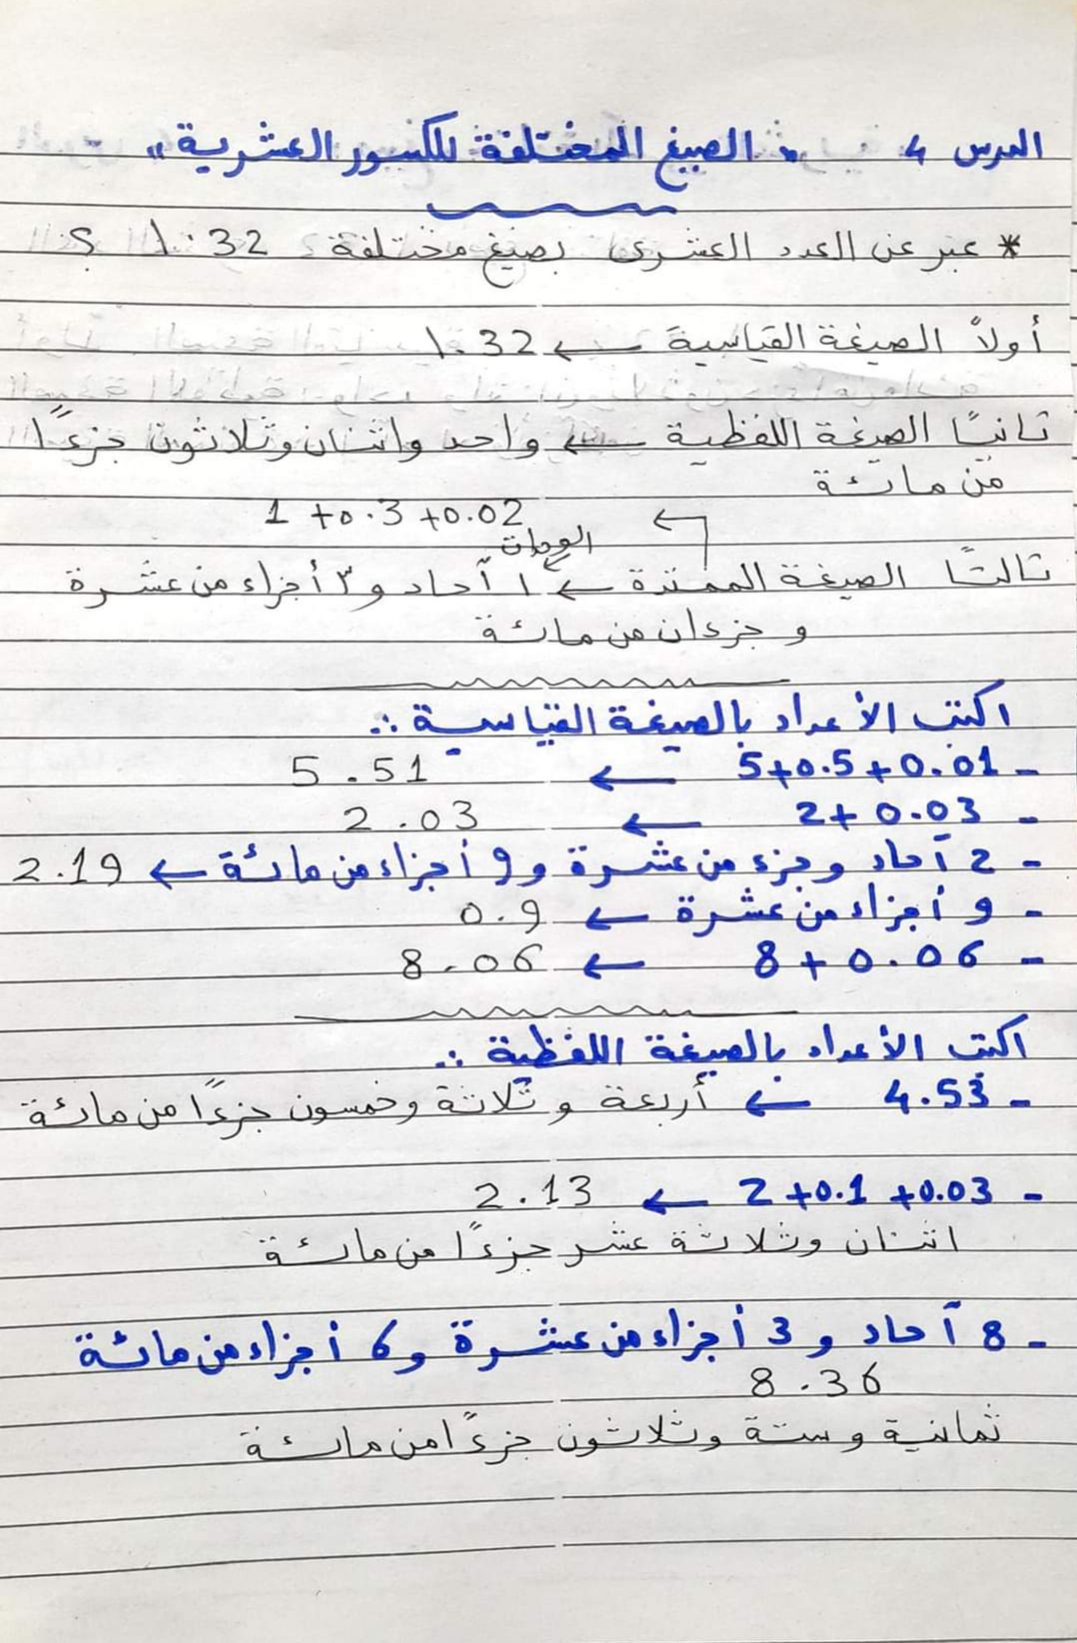 الدرس 4 " الصيغ المختلفة للكسور العشرية "
* عبر عن العدد العشرى بصيغ مختلفة 1.32 ؟
أولاً الصيغة القياسية ← 1.32
ثانيًا الصيغة اللفظية ← واحد واثنان وثلاثون جزءًا
من مائة
1 + 0.3 + 0.02
الوحدات
ثالثًا الصيغة الممتدة ← ١ آحاد و ٣ أجزاء من عشرة
و جزءان من مائة
اكتب الأعداد بالصيغة القياسية :
- 5+0.5+0.01 ← 5.51
- 2+0.03 ← 2.03
- 2 آحاد وجزء من عشرة و 9 أجزاء من مائة ← 2.19
- 9 أجزاء من عشرة ← 0.9
- 8+0.06 ← 8.06
اكتب الأعداد بالصيغة اللفظية :
- 4.53 ← أربعة و ثلاثة وخمسون جزءًا من مائة
- 2+0.1+0.03 ← 2.13
اثنان وثلاثة عشر جزءًا من مائة
- 8 آحاد و 3 أجزاء من عشرة و 6 أجزاء من مائة
8.36
ثمانية وستة وثلاثون جزءًا من مائة